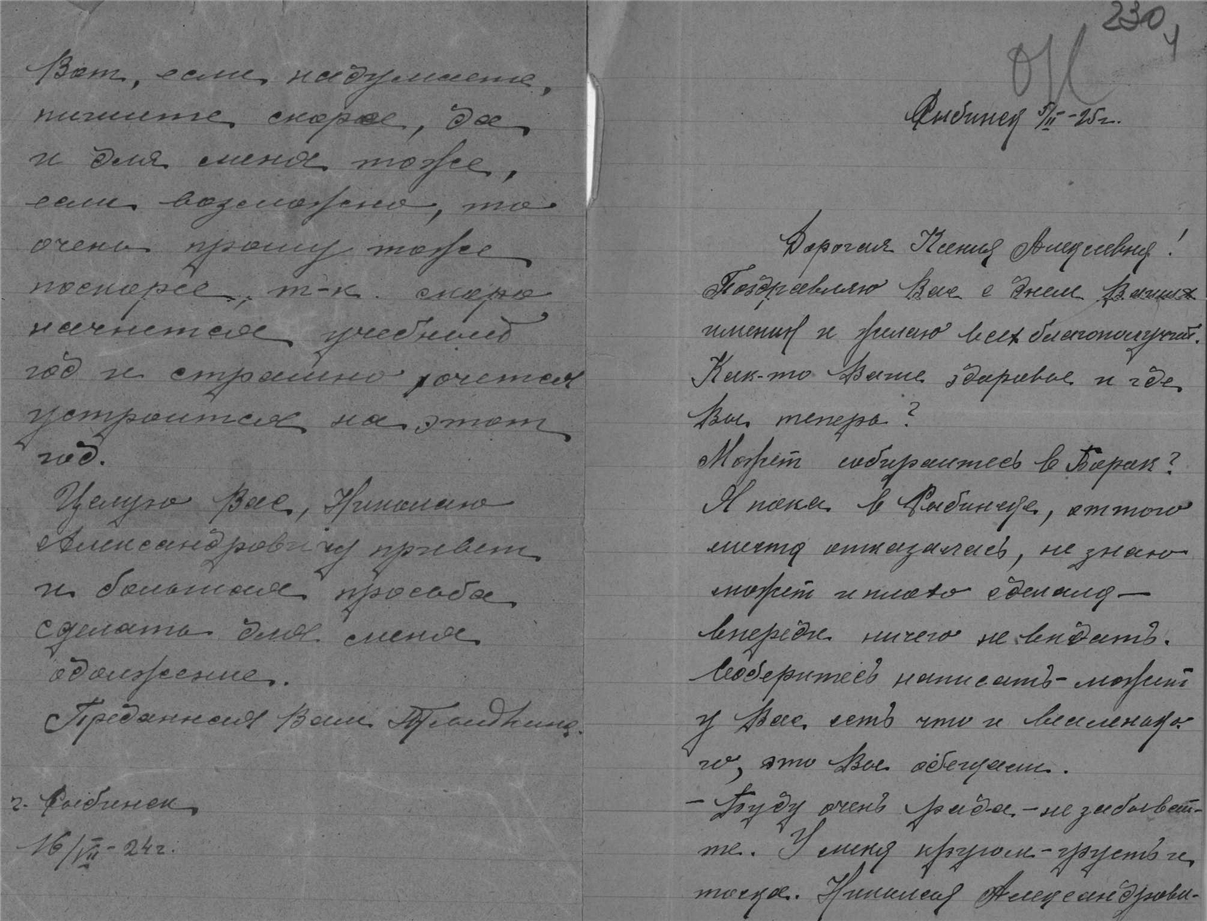 Вот, если надумаете,
пишите скорее, да
и для меня тоже,
если возможно, то
очень прошу тоже
поскорее, т-к. скоро
начнется учебный
год и страшно хочется
устроится на этот
год.
Целую Вас, Николаю
Александровичу привет
и большая просьба
сделать для меня
одолжение.
Преданная Вам
г. Рыбинск
16/VII-24г.
230
Рыбинск 5/II-25г.
Дорогая Ксения Алексеевна!
Поздравляю Вас с днем Ваших
имянин и желаю всех благополучий.
Как-то Ваше здоровье и где
Вы теперь?
Может собираетесь в Борок?
Я пока в Рыбинске, от того
места отказалась, не знаю
может и плохо сделала —
впереди ничего не видать.
Соберитесь написать – может
у Вас есть что и веселенько-
го, это Вы обещали.
– Буду очень рада – не забывай-
те. У меня кругом – грусть и
тоска. Николая Александрови-